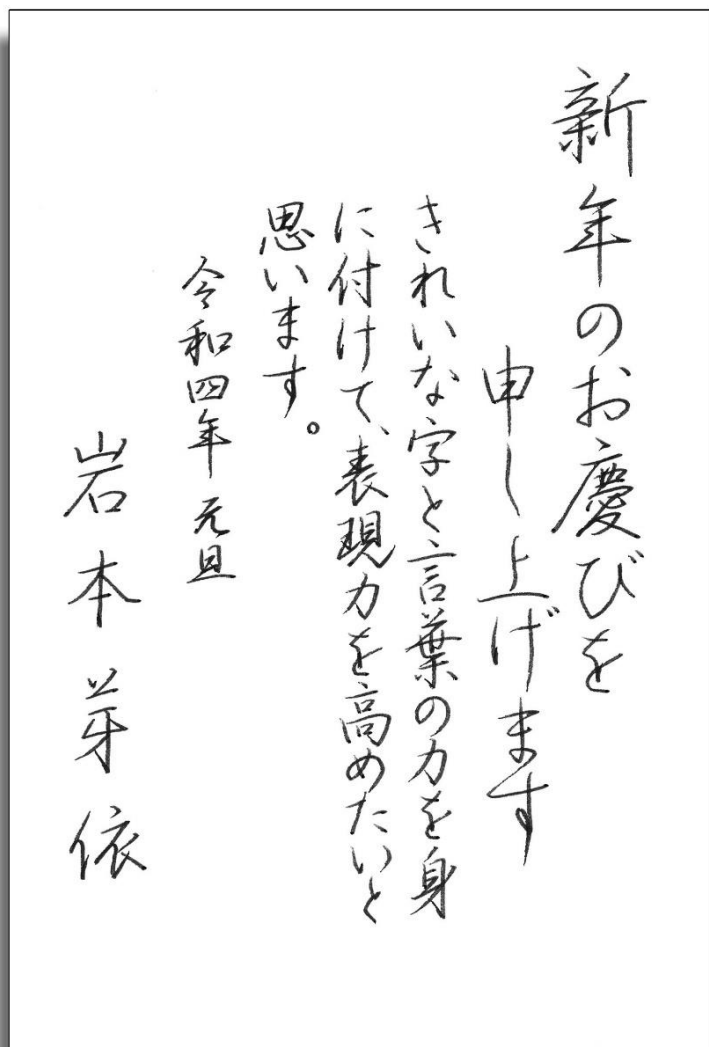 新年のお慶びを
申し上げます
きれいな字と言葉の力を身
に付けて、表現力を高めたいと
思います。
令和四年 元旦
岩本 芽依